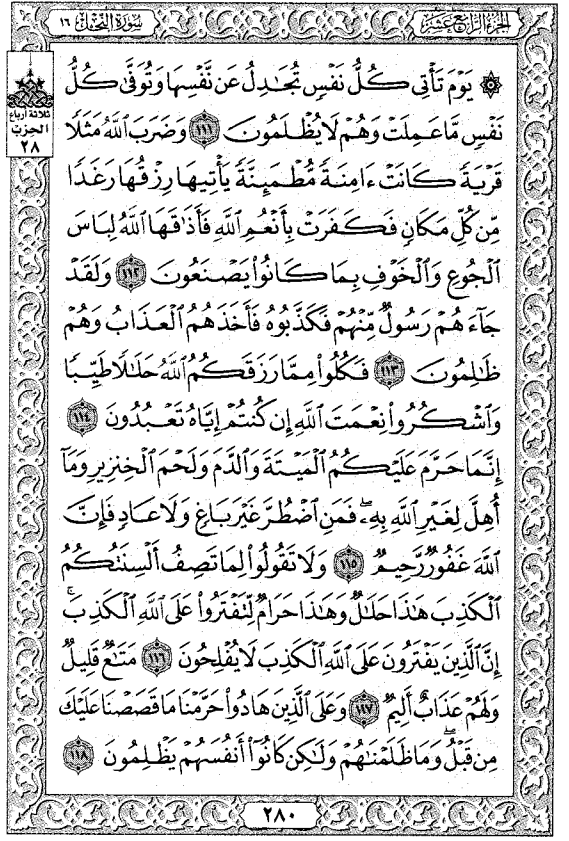 الجزء الرابع عشر
سورة النحل ١٦
ثلاثة أرباع
الحزب
٢٨
۞ يَوْمَ تَأْتِي كُلُّ نَفْسٍ تُجَٰدِلُ عَن نَّفْسِهَا وَتُوَفَّىٰ كُلُّ
نَفْسٍ مَّا عَمِلَتْ وَهُمْ لَا يُظْلَمُونَ ١١١ وَضَرَبَ ٱللَّهُ مَثَلًا
قَرْيَةً كَانَتْ ءَامِنَةً مُّطْمَئِنَّةً يَأْتِيهَا رِزْقُهَا رَغَدًا
مِّن كُلِّ مَكَانٍ فَكَفَرَتْ بِأَنْعُمِ ٱللَّهِ فَأَذَٰقَهَا ٱللَّهُ لِبَاسَ
ٱلْجُوعِ وَٱلْخَوْفِ بِمَا كَانُوا۟ يَصْنَعُونَ ١١٢ وَلَقَدْ
جَآءَهُمْ رَسُولٌ مِّنْهُمْ فَكَذَّبُوهُ فَأَخَذَهُمُ ٱلْعَذَابُ وَهُمْ
ظَٰلِمُونَ ١١٣ فَكُلُوا۟ مِمَّا رَزَقَكُمُ ٱللَّهُ حَلَٰلًا طَيِّبًا
وَٱشْكُرُوا۟ نِعْمَتَ ٱللَّهِ إِن كُنتُمْ إِيَّاهُ تَعْبُدُونَ ١١٤
إِنَّمَا حَرَّمَ عَلَيْكُمُ ٱلْمَيْتَةَ وَٱلدَّمَ وَلَحْمَ ٱلْخِنزِيرِ وَمَآ
أُهِلَّ لِغَيْرِ ٱللَّهِ بِهِۦ ۖ فَمَنِ ٱضْطُرَّ غَيْرَ بَاغٍ وَلَا عَادٍ فَإِنَّ
ٱللَّهَ غَفُورٌ رَّحِيمٌ ١١٥ وَلَا تَقُولُوا۟ لِمَا تَصِفُ أَلْسِنَتُكُمُ
ٱلْكَذِبَ هَٰذَا حَلَٰلٌ وَهَٰذَا حَرَامٌ لِّتَفْتَرُوا۟ عَلَى ٱللَّهِ ٱلْكَذِبَ ۚ
إِنَّ ٱلَّذِينَ يَفْتَرُونَ عَلَى ٱللَّهِ ٱلْكَذِبَ لَا يُفْلِحُونَ ١١٦ مَتَٰعٌ قَلِيلٌ
وَلَهُمْ عَذَابٌ أَلِيمٌ ١١٧ وَعَلَى ٱلَّذِينَ هَادُوا۟ حَرَّمْنَا مَا قَصَصْنَا عَلَيْكَ
مِن قَبْلُ ۖ وَمَا ظَلَمْنَٰهُمْ وَلَٰكِن كَانُوٓا۟ أَنفُسَهُمْ يَظْلِمُونَ ١١٨
٢٨٠